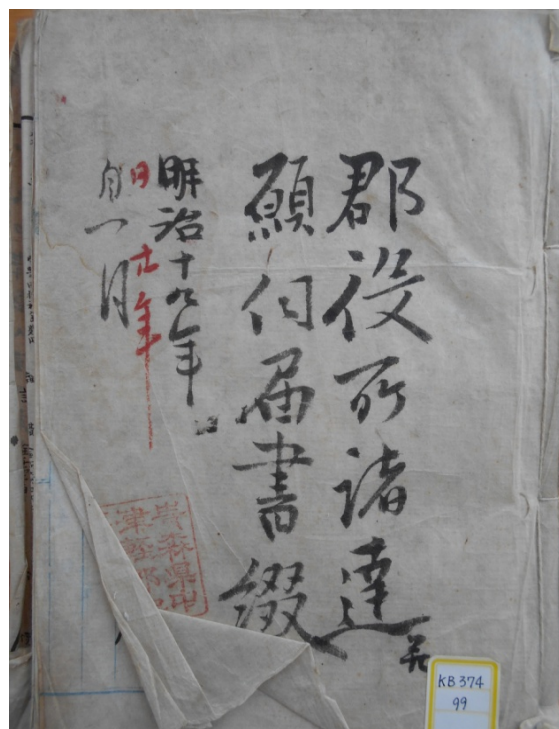 郡役所諸達并
願伺届書綴
明治十九年
同廿年
自一月
青森県中
津軽郡
KB 374
99